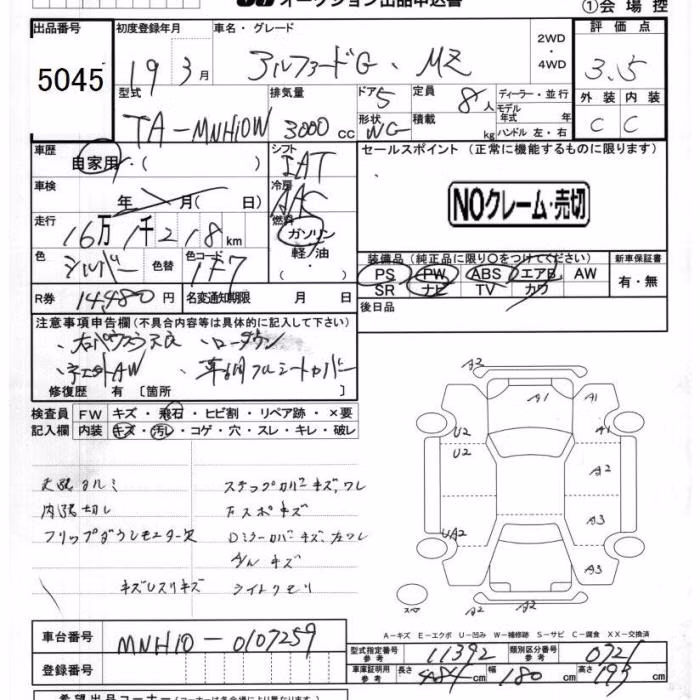 オークション出品申込書
①会場控
出品番号 初度登録年月 車名・グレード 評価点
5045 19 3月 アルファードG・MZ 2WD・4WD 3.5
型式 排気量 ドア 5 定員 8人 ディーラー・並行 外装 内装
モデル年式 年
TA-MNH10W 3000cc 形状 WG 積載 kg ハンドル 左・右 C C
車歴 自家用・( ) シフト IAT セールスポイント (正常に機能するものに限ります)
車検 年 月( 日) 冷房 AAC
NOクレーム・売切
走行 16万1千218km 燃料 ガソリン 軽/油・( )
色 シルバー 色替 色コード 1F7
装備品(純正品に限り○をつけてください) 新車保証書
PS PW ABS エアB AW 有・無
SR ナビ TV カワ
R券 14,480円 名変通知期限 月 日
後日品
注意事項申告欄(不具合内容等は具体的に記入して下さい)
・右パワスラ不良 ・ローダウン
・社外AW ・専用フルシートカバー
修復歴 有 〔箇所 〕
検査員 FW キズ・飛石・ヒビ割・リペア跡・×要
記入欄 内装 キズ・汚レ・コゲ・穴・スレ・キレ・破レ
A2
A1 A1
U2 A1
U2 A2
A3
UA2
A3 A3
A2 A2
スペ
天張タルミ ステップカバーキズ、ワレ
内張切レ Fスポキズ
フリップダウンモニター欠 Dミラーカバーキズ、左ワレ
A/Wキズ
キズレスリキズ ライトクモリ
A-キズ E-エクボ U-凹み W-補修跡 S-サビ C-腐食 XX-交換済
車台番号 MNH10-0107259
型式指定番号 参考 11392 類別区分番号 参考 0721
登録番号
車庫証明用 参考 長さ 484cm 幅 180cm 高さ 193cm
希望出品コーナー(コーナーは各会場により異なります)